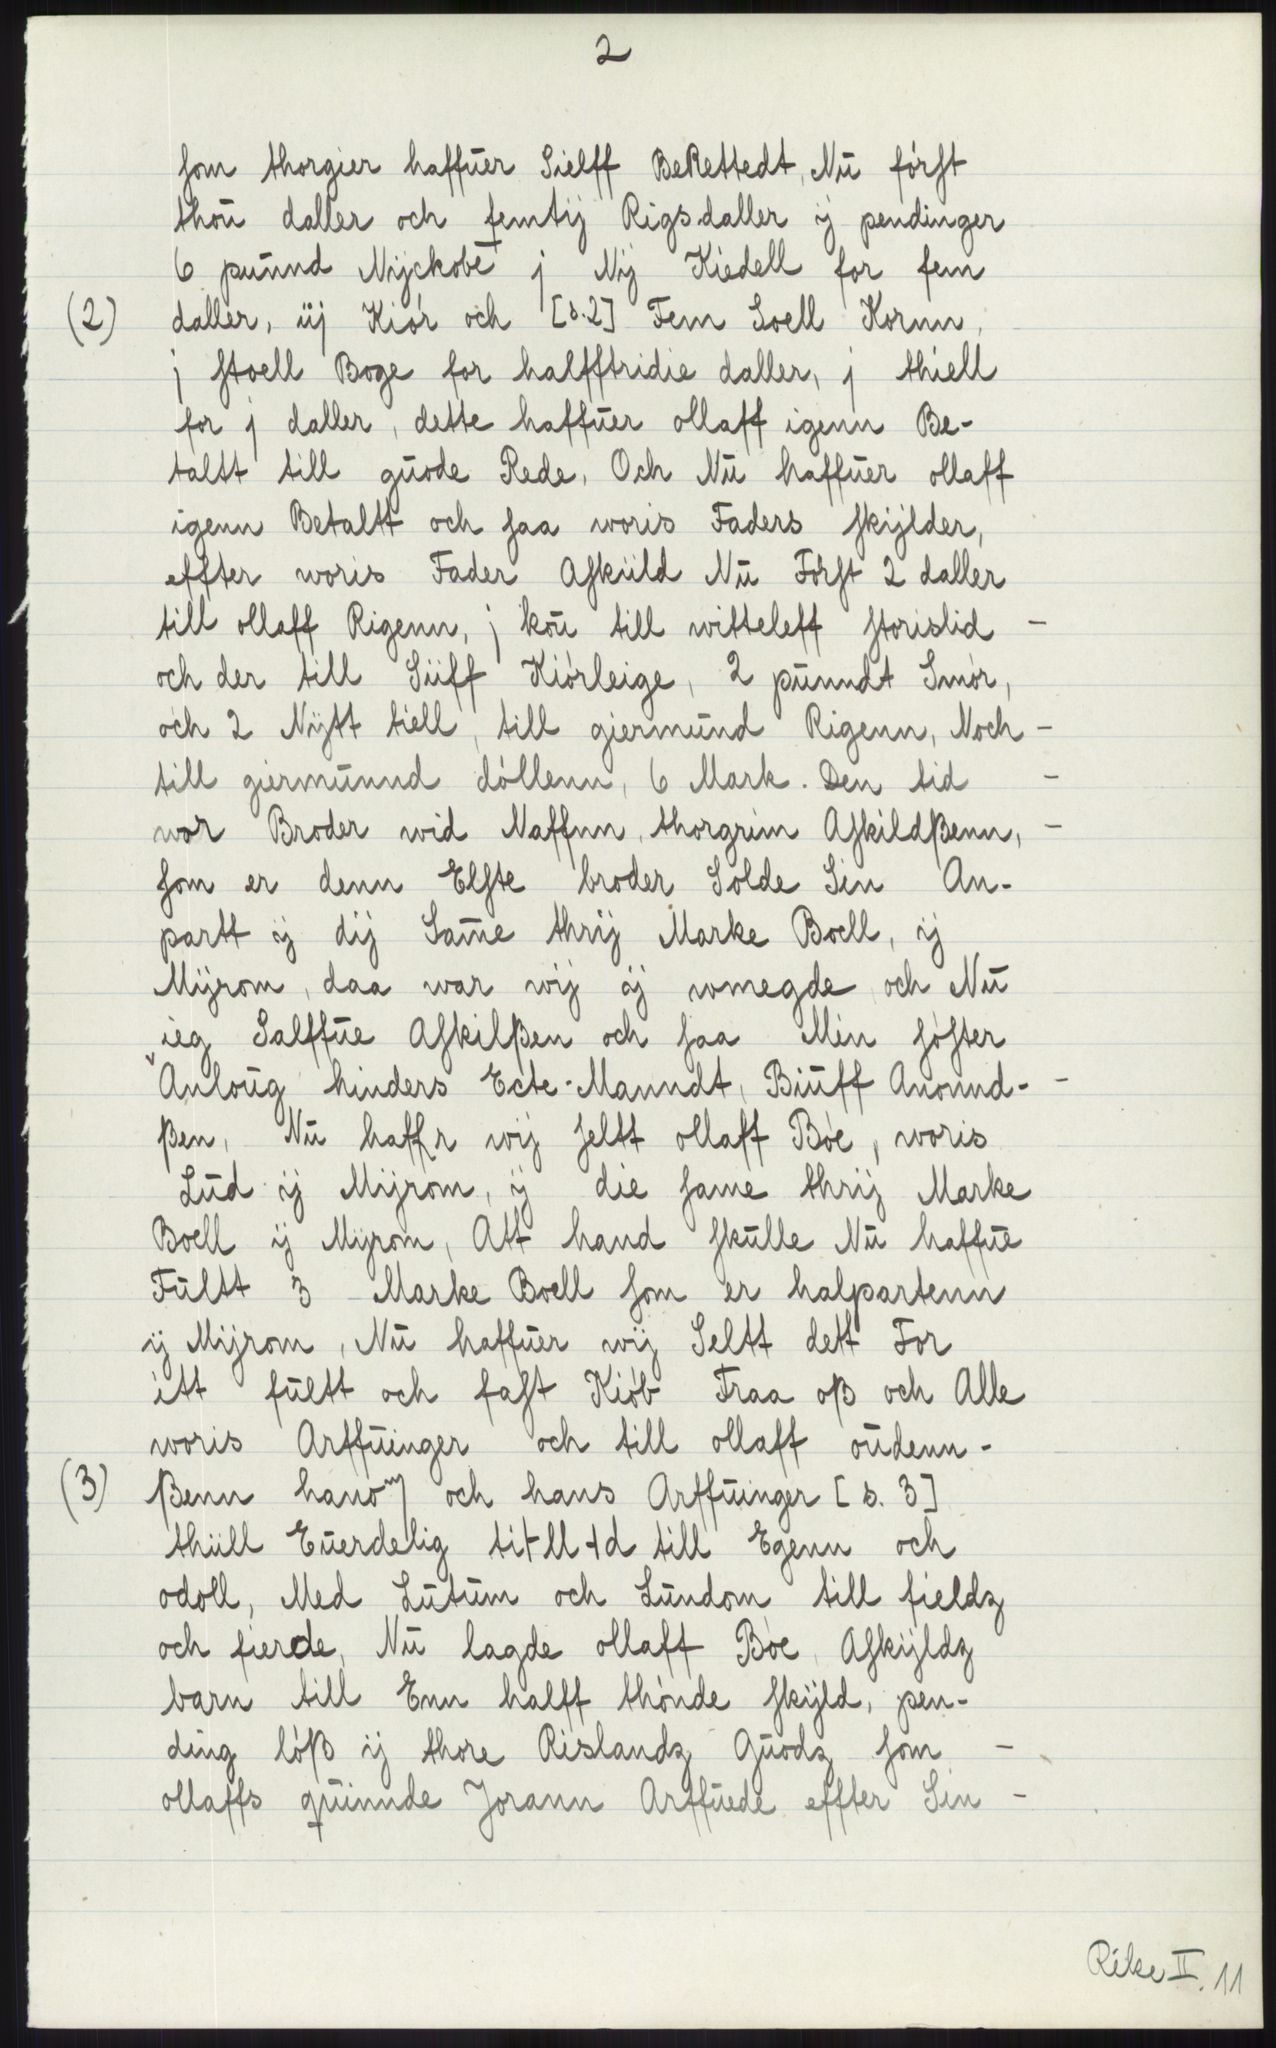 2
som thorgier haffuer Sielff BeRettedt, Nu först
thou daller och femtij Rigsdaller ij pendinger
6 puund Nyckobe j Nij Kiedell for fem
(2) daller, iij Kiör och [s.2] Fem Soell Kornn,
j stoell Boge for halfftridie daller, j thiell
for j daller, dette haffuer ollaff igenn Be-
taltt till guode Rede, Och Nu haffuer ollaff
igenn Betaltt och saa woris Faders skijlder,
effter woris Fader Askiild Nu Först 2 daller
till ollaff Rigenn, j kou till witteleff storislid -
och der till Siiff Kiörleige, 2 punndt Smör,
och 2 Nijtt tiell, till giermund Rigenn, Noch -
till giermunnd döllenn, 6 Mark. Den tid -
wor Broder wid Naffnn, thorgrim Askildßenn, -
som er denn Elste broder Solde Sin An-
partt ij dij Same thrij Marke Boell, ij
Mijrom, daa war wij ij wmegde och Nu
ieg Salffue Askilßen och saa Min söster
Anloug hinders Ecte-Manndt, Biuff Anonnd- -
ßen, Nu haffr wij seltt ollaff Böe, woris
Lud ij Mijrom, ij die same thrij Marke
Boell ij Mijrom, Att hand skulle Nu haffue
Fultt 3 Marke Boell som er halpartenn
ij Mijrom, Nu haffuer wij Seltt dett For
itt fultt och fast Kiöb Fraa oß och Alle
woris Arffuinger och till ollaff oudenn-
(3) ßenn hanom och hans Arffuinger [s. 3]
thiill Euerdelig titll td till Egenn och
odoll, Med Lutum och Lundom till fieldz
och fierde, Nu lagde ollaff Böe, Askijldz
barn till Enn halff thönde skijld, pen-
ding löß ij thore Rislandz Guodz som -
ollaffs quinnde Jorann Arffuede effter Sin -
Rike II. 11